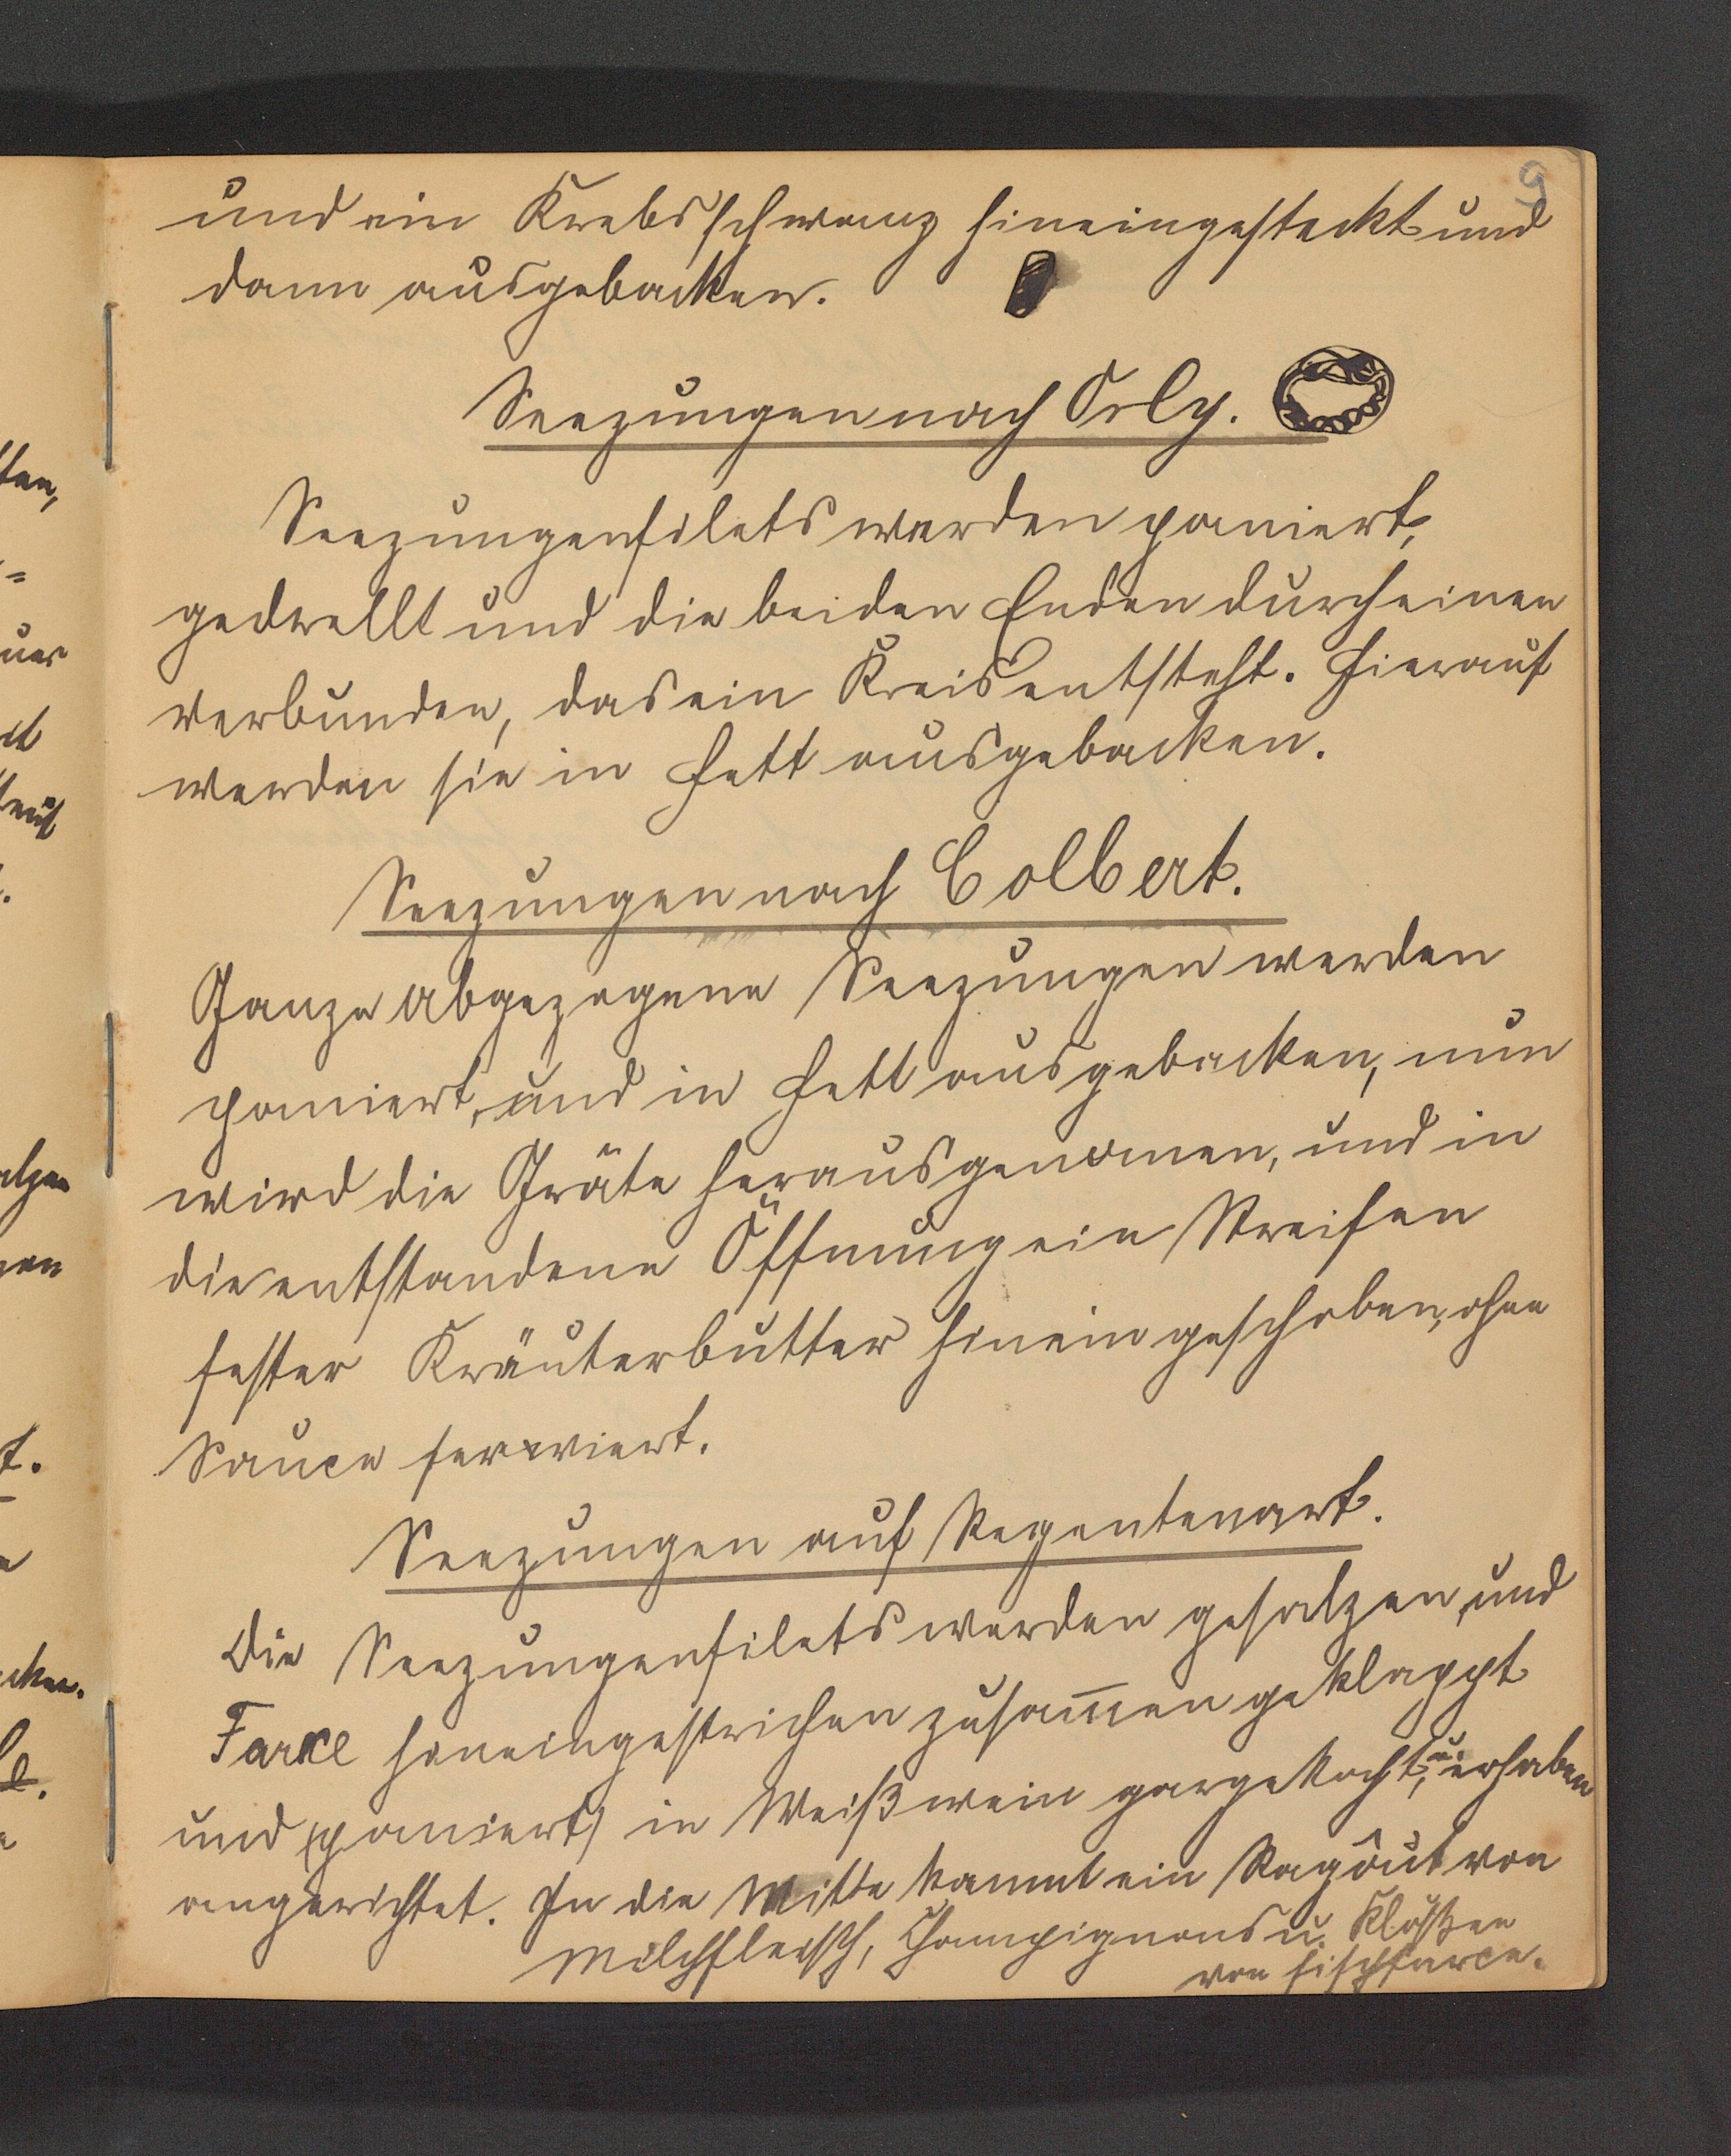 9
und ein Krebsschwanz hineingesteckt und
dann ausgebacken.
Seezungen nach Orly.
Seezungenfilets werden paniert,
gedrellt und die beiden Enden durch einen
verbunden, das ein Kreis entsteht. Hierauf
werden sie in Fett ausgebacken.
Seezungen nach Colbert.
Ganze abgezogene Seezungen werden
paniert, und in Fett ausgebacken, nun
wird die Gräte herausgenomen, und in
die entstandene Öffnung ein Streifen
fester Kräuterbutter hineingeschoben, ohne
Sauce serwiert.
Seezungen auf Regentenart.
Die Seezungenfilets werden gesalzen, und
Farce hineingestrichen zusam̅en geklappt
und (paniert) in Weißwein gargekocht, u. erhaben
angerichtet. In die Mitte kommt ein Ragôut von
Milchfleisch, Champignons u. Klößen
von Fischfarce.
ten,
=
alzen
nen
t.
cken.